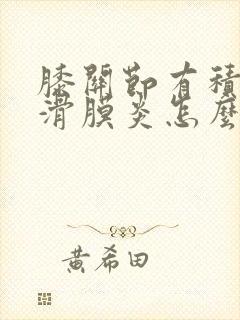 膝關節有積
滑膜炎怎麼
黃希田